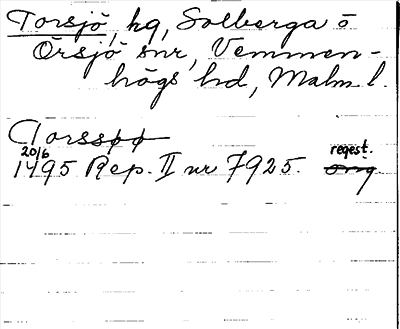 Torsjö, hg, Solberga o
Örsjö snr, Vemmen-
högs hd, Malm. l.
Torssøø
20/6 regest.
1495 Rep. II nr 7925. orig